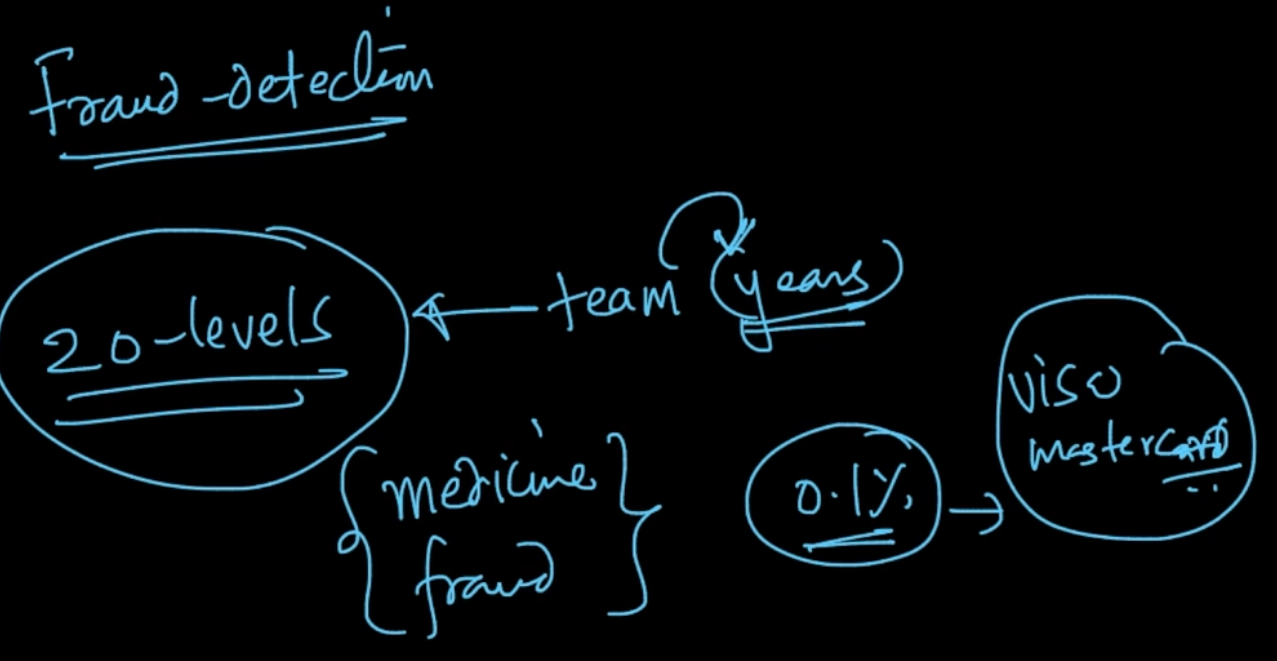 Fraud-detection
20-levels ← team (years)
{medicine
fraud}
0.1% →
visa
mastercard